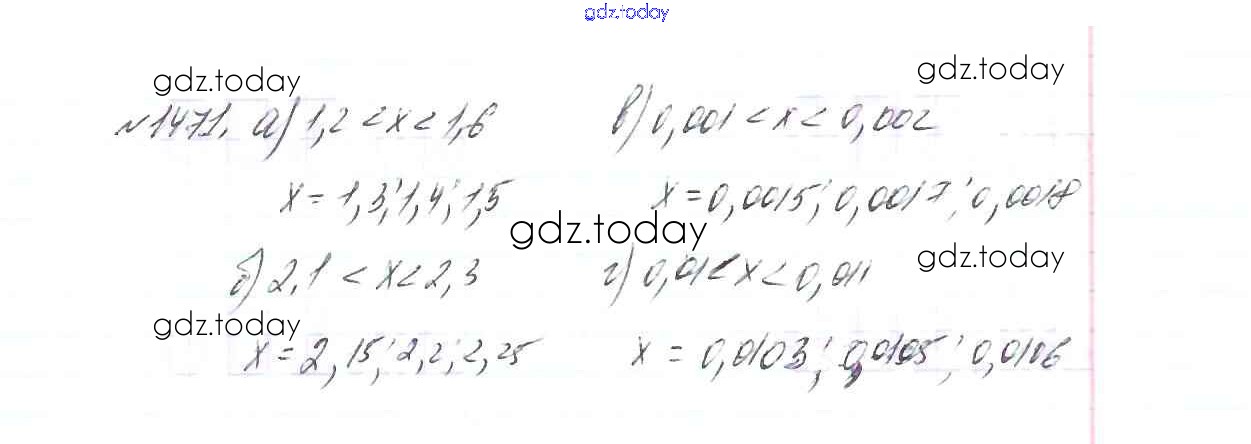 gdz.today
gdz.today
gdz.today
№1471. а) 1,2 < x < 1,6
в) 0,001 < x < 0,002
x = 1,3; 1,4; 1,5
x = 0,0015; 0,0017; 0,0018
gdz.today
б) 2,1 < x < 2,3
г) 0,01 < x < 0,011
gdz.today
gdz.today
x = 2,15; 2,2; 2,25
x = 0,0103; 0,0105; 0,0106